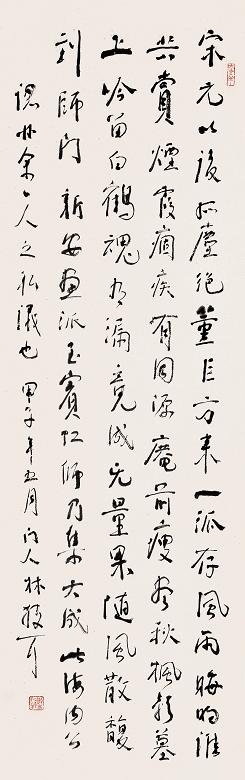 宋元以後孤塵絕董巨方来一派存風雨晦明誰
共賞煙霞痼疾有同源庵前瘦盡秋楓影墓
上吟留白鶴魂有漏竟成无量果随風散馥
到師門新安畫派至賓虹師乃集大成此海内公
認非余人之私議也甲子年五月門人林散耳